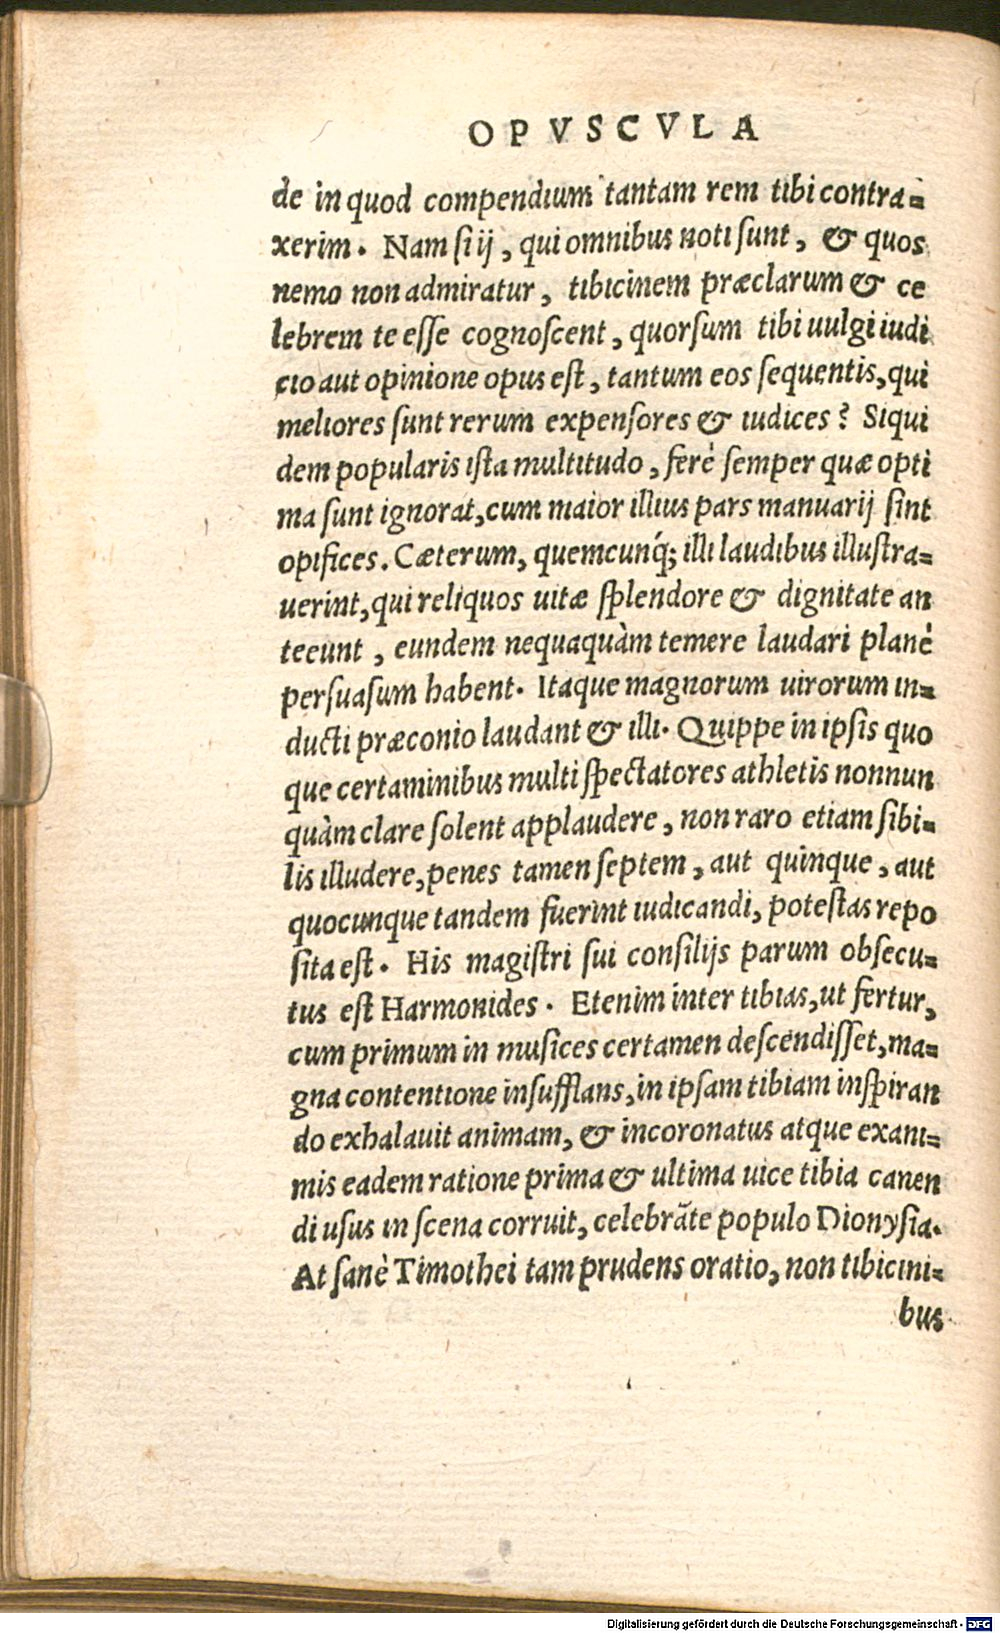 OPVSCVLA
de in quod compendium tantam rem tibi contra=
xerim. Nam si ij, qui omnibus noti sunt, & quos
nemo non admiratur, tibicinem præclarum & ce
lebrem te esse cognoscent, quorsum tibi uulgi iudi
cio aut opinione opus est, tantum eos sequentis, qui
meliores sunt rerum expensores & iudices? Siqui
dem popularis ista multitudo, ferè semper quæ opti
ma sunt ignorat, cum maior illius pars manuarij sint
opifices. Cæterum, quemcunq́; illi laudibus illustra=
uerint, qui reliquos uitæ splendore & dignitate an
teeunt, eundem nequaquàm temere laudari planè
persuasum habent. Itaque magnorum uirorum in=
ducti præconio laudant & illi. Quippe in ipsis quo
que certaminibus multi spectatores athletis nonnun
quàm clare solent applaudere, non raro etiam sibi=
lis illudere, penes tamen septem, aut quinque, aut
quocunque tandem fuerint iudicandi, potestas repo
sita est. His magistri sui consilijs parum obsecu=
tus est Harmonides. Etenim inter tibias, ut fertur,
cum primum in musices certamen descendisset, ma=
gna contentione insufflans, in ipsam tibiam inspiran
do exhalauit animam, & incoronatus atque exani=
mis eadem ratione prima & ultima uice tibia canen
di usus in scena corruit, celebrãte populo Dionysia.
At sanè Timothei tam prudens oratio, non tibicini=
bus
Digitalisierung gefördert durch die Deutsche Forschungsgemeinschaft - DFG